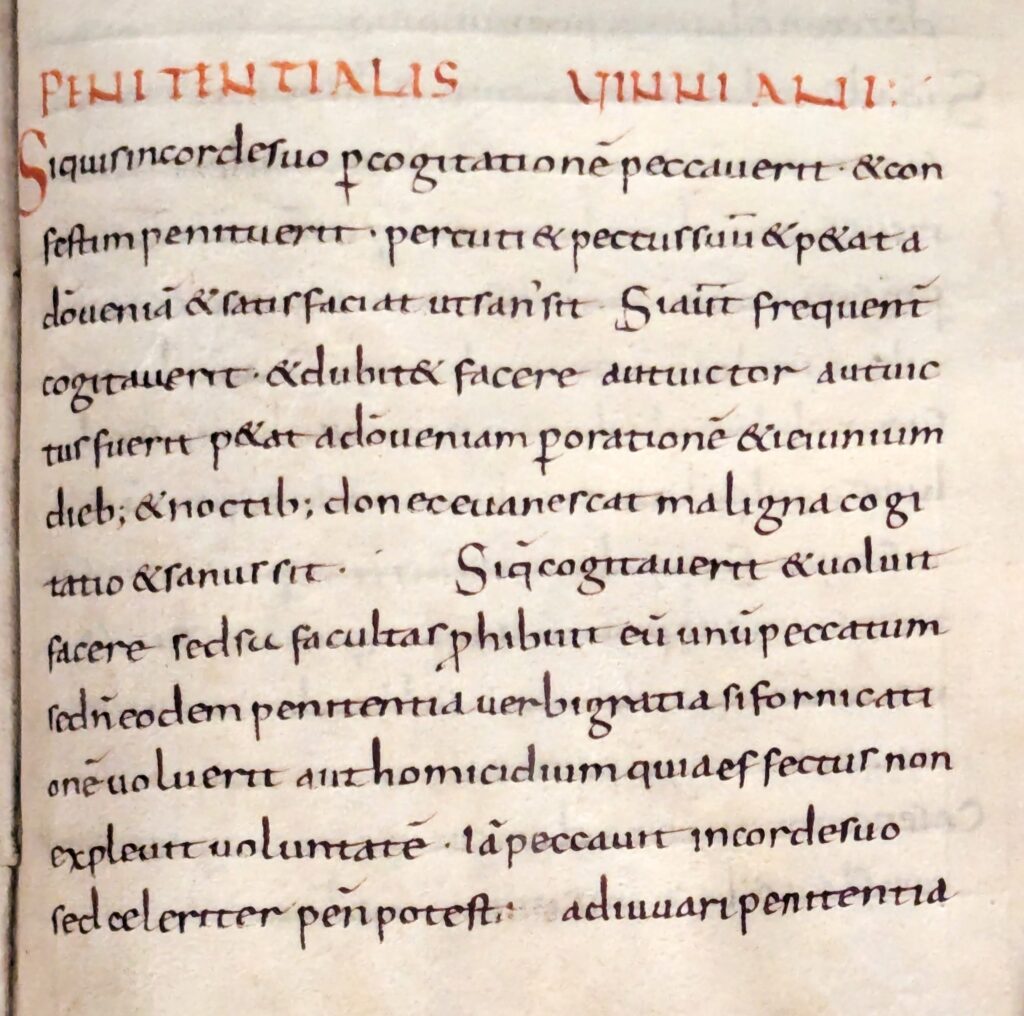 PENITENTIALIS VINNIANI:
Siquisincordesuo ꝑcogitationē peccauerit · &con
festim penituerit · percuti& pectussuū &p&at a
dōueniā &satisfaciat utsan'sit · Siaūt frequent̄
cogitauerit · &dubit& facere autuictor autuic
tusfuerit p&at adōueniam ꝑorationē &ieiunium
dieb; &noctib; donec euanescat maligna cogi
tatio &sanussit · Siq̄cogitauerit &voluit
facere sedsu facultas ꝓhibuit eū unū peccatum
sedn̄ eodem penitentia uerbigratia sifornicati
onē uoluerit aut homicidium quiaeffectus non
expleuit uoluntatē · Iā peccauit incordesuo
sed celeriter pen̄ potest: adiuuari penitentia